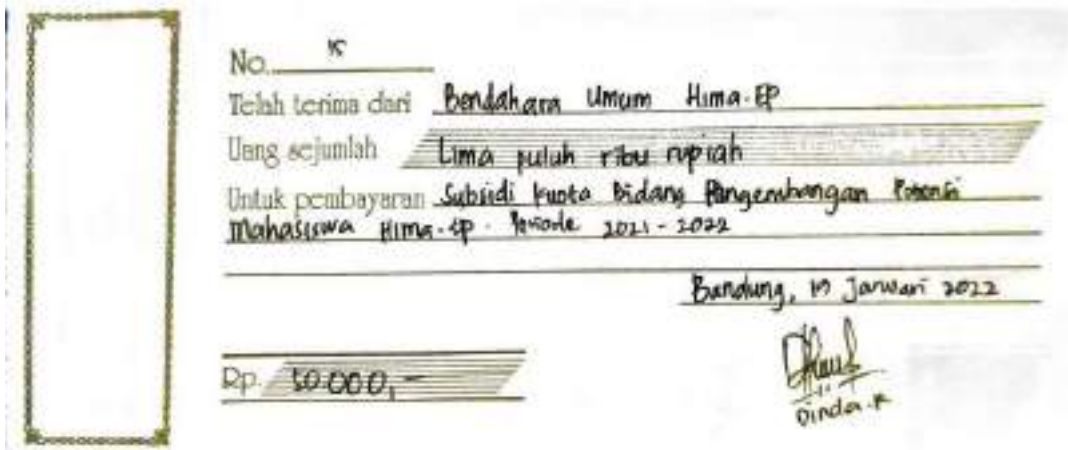 No. 15
Telah terima dari Bendahara Umum Hima-EP
Uang sejumlah Lima puluh ribu rupiah
Untuk pembayaran Subsidi kuota Bidang Pengembangan Potensi
Mahasiswa Hima-EP. Periode 2021-2022
Bandung, Januari 2022
Rp. 50.000,-
Dinda.R